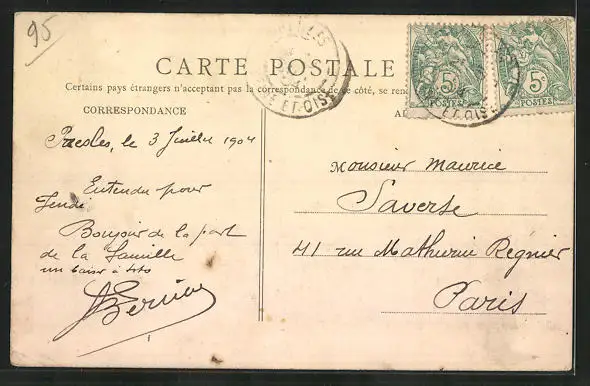 95
CARTE POSTALE
Certains pays étrangers n'acceptant pas la correspondance de ce côté, se ren
CORRESPONDANCE
Presles, le 3 Juillet 1904
Entendu pour
Jeudi
Bonjour de la part
de la famille
un baiser à toto
Monsieur Maurice
Saverse
41 rue Mathurin Régnier
Paris
5c
POSTES
5c
POSTES
ET-OISE
ET-OISE